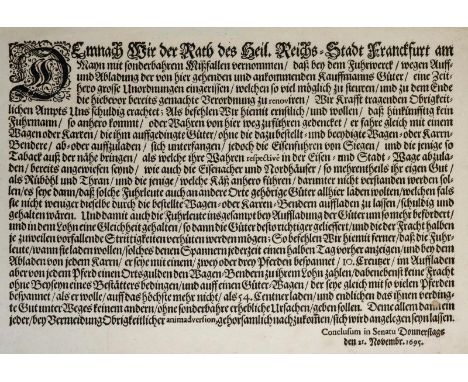 DEmnach Wir der Rath des Heil. Reichs-Stadt Franckfurt am
Mayn mit sonderbahrem Mißfallen vernommen / daß bey dem Fuhrwerck / wegen Auff-
und Abladung der von hier gehenden und ankommenden Kauffmanns Güter / eine Zeit-
hero grosse Unordnungen eingerissen / welchen so viel möglich zu steuren / und zu dem Ende
die hiebevor bereits gemachte Verordnung zu renoviren / Wir Krafft tragenden Obrigkeit-
lichen Ampts Uns schuldig erachtet: Als befehlen Wir hiemit ernstlich / und wollen / daß hinkünfftig kein
Fuhrmann / so anhero kommt / oder Güter von hier weg zuführen gedencket / er fahre gleich mit einem
Wagen oder Karren / die ihm auffgedingte Güter / ohne die dazu bestellt- und beeydigte Wagen- oder Karrn-
Bendere / ab- oder auffzuladen / sich unterfangen / jedoch die Eisenfuhren von Siegen / und die jenige so
Taback auß der nähe bringen / als welche ihre Wahren respectivè in der Eisen- und Stadt-Wage abzula-
den / bereits angewiesen seynd / wie auch die Eisenacher und Nordhäuser / so mehrentheils ihr eigen Gut /
als Rüböhl und Thran / und die jenige / welche Käß anhero führen / darunter nicht verstanden werden sol-
len / es seye dann / daß solche Fuhrleute auch an andere Ort gehörige Güter allhier laden wolten / welchen falß
sie nicht weniger dieselbe durch die bestellte Wagen- oder Karren-Bendern auffladen zu lassen / schuldig und
gehalten wären. Und damit auch die Fuhrleute insgesampt bey Auffladung der Güter um so mehr befördert /
und in dem Lohn eine Gleichheit gehalten / so dann die Güter desto richtiger geliefert / und die der Fracht halben
je zuweilen vorfallende Strittigkeiten verhütet werden mögen: So befehlen Wir hiemit ferner / daß die Fuhr-
leute / wann sie laden wollen / solches denen Spannern jederzeit einen halben Tag vorher anzeigen / und bey dem
Abladen von jedem Karrn / er seye mit einem / zwey oder drey Pferden bespannet / 10. Creutzer / im Auffladen
aber von jedem Pferd einen Ortsgulden den Wagen-Bendern zu ihrem Lohn zahlen / dabenebenst keine Fracht
ohne Beyseyn eines Bestätters bedingen / und auff einen Güter-Wagen / der seye gleich mit so vielen Pferden
bespannet / als er wolle / auff das höchste mehr nicht / als 54. Centner laden / und endlichen das ihnen verding-
te Gut unter Weges keinem andern / ohne sonderbahre erhebliche Ursachen / geben sollen. Deme allem dann ein
jeder / bey Vermeidung Obrigkeitlicher animadversion, gehorsamlich nachzukommen / sich wird angelegen seyn lassen.
Conclusum in Senatu Donnerstags
den 21. Novembr. 1695.